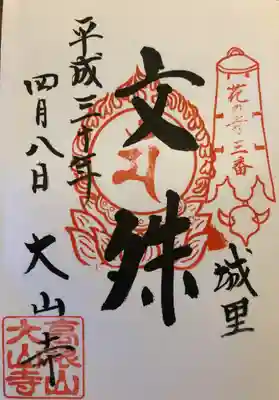 花の寺三番
城里
文殊
平成三十年
四月八日
大山寺
高根山
大山寺